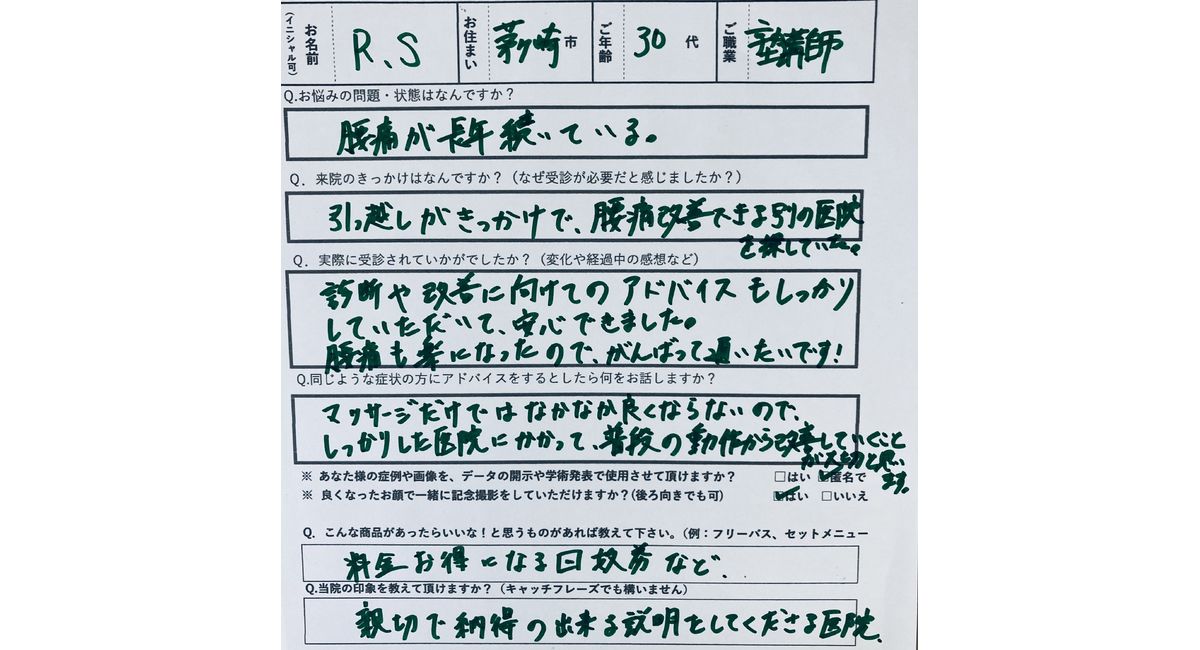 お名前（イニシャル可） R、S お住まい 茅ヶ崎市 ご年齢 30代 ご職業 塾講師
Q.お悩みの問題・状態はなんですか？
腰痛が長年続いている。
Q．来院のきっかけはなんですか？（なぜ受診が必要だと感じましたか？）
引っ越しがきっかけで、腰痛改善できる別の医院
を探していた。
Q．実際に受診されていかがでしたか？（変化や経過中の感想など）
診断や改善に向けてのアドバイスもしっかり
していただいて、安心できました。
腰痛も楽になったので、がんばって通いたいです！
Q.同じような症状の方にアドバイスをするとしたら何をお話しますか？
マッサージだけではなかなか良くならないので、
しっかりした医院にかかって、普段の動作から改善していくこと
が大切と思い
ます。
※ あなた様の症例や画像を、データの開示や学術発表で使用させて頂けますか？ □はい ☑匿名で
※ 良くなったお顔で一緒に記念撮影をしていただけますか？（後ろ向きでも可） ☑はい □いいえ
Q．こんな商品があったらいいな！と思うものがあれば教えて下さい。（例：フリーパス、セットメニュー
料金お得になる回数券など、
Q.当院の印象を教えて頂けますか？（キャッチフレーズでも構いません）
親切で納得の出来る説明をしてくださる医院、